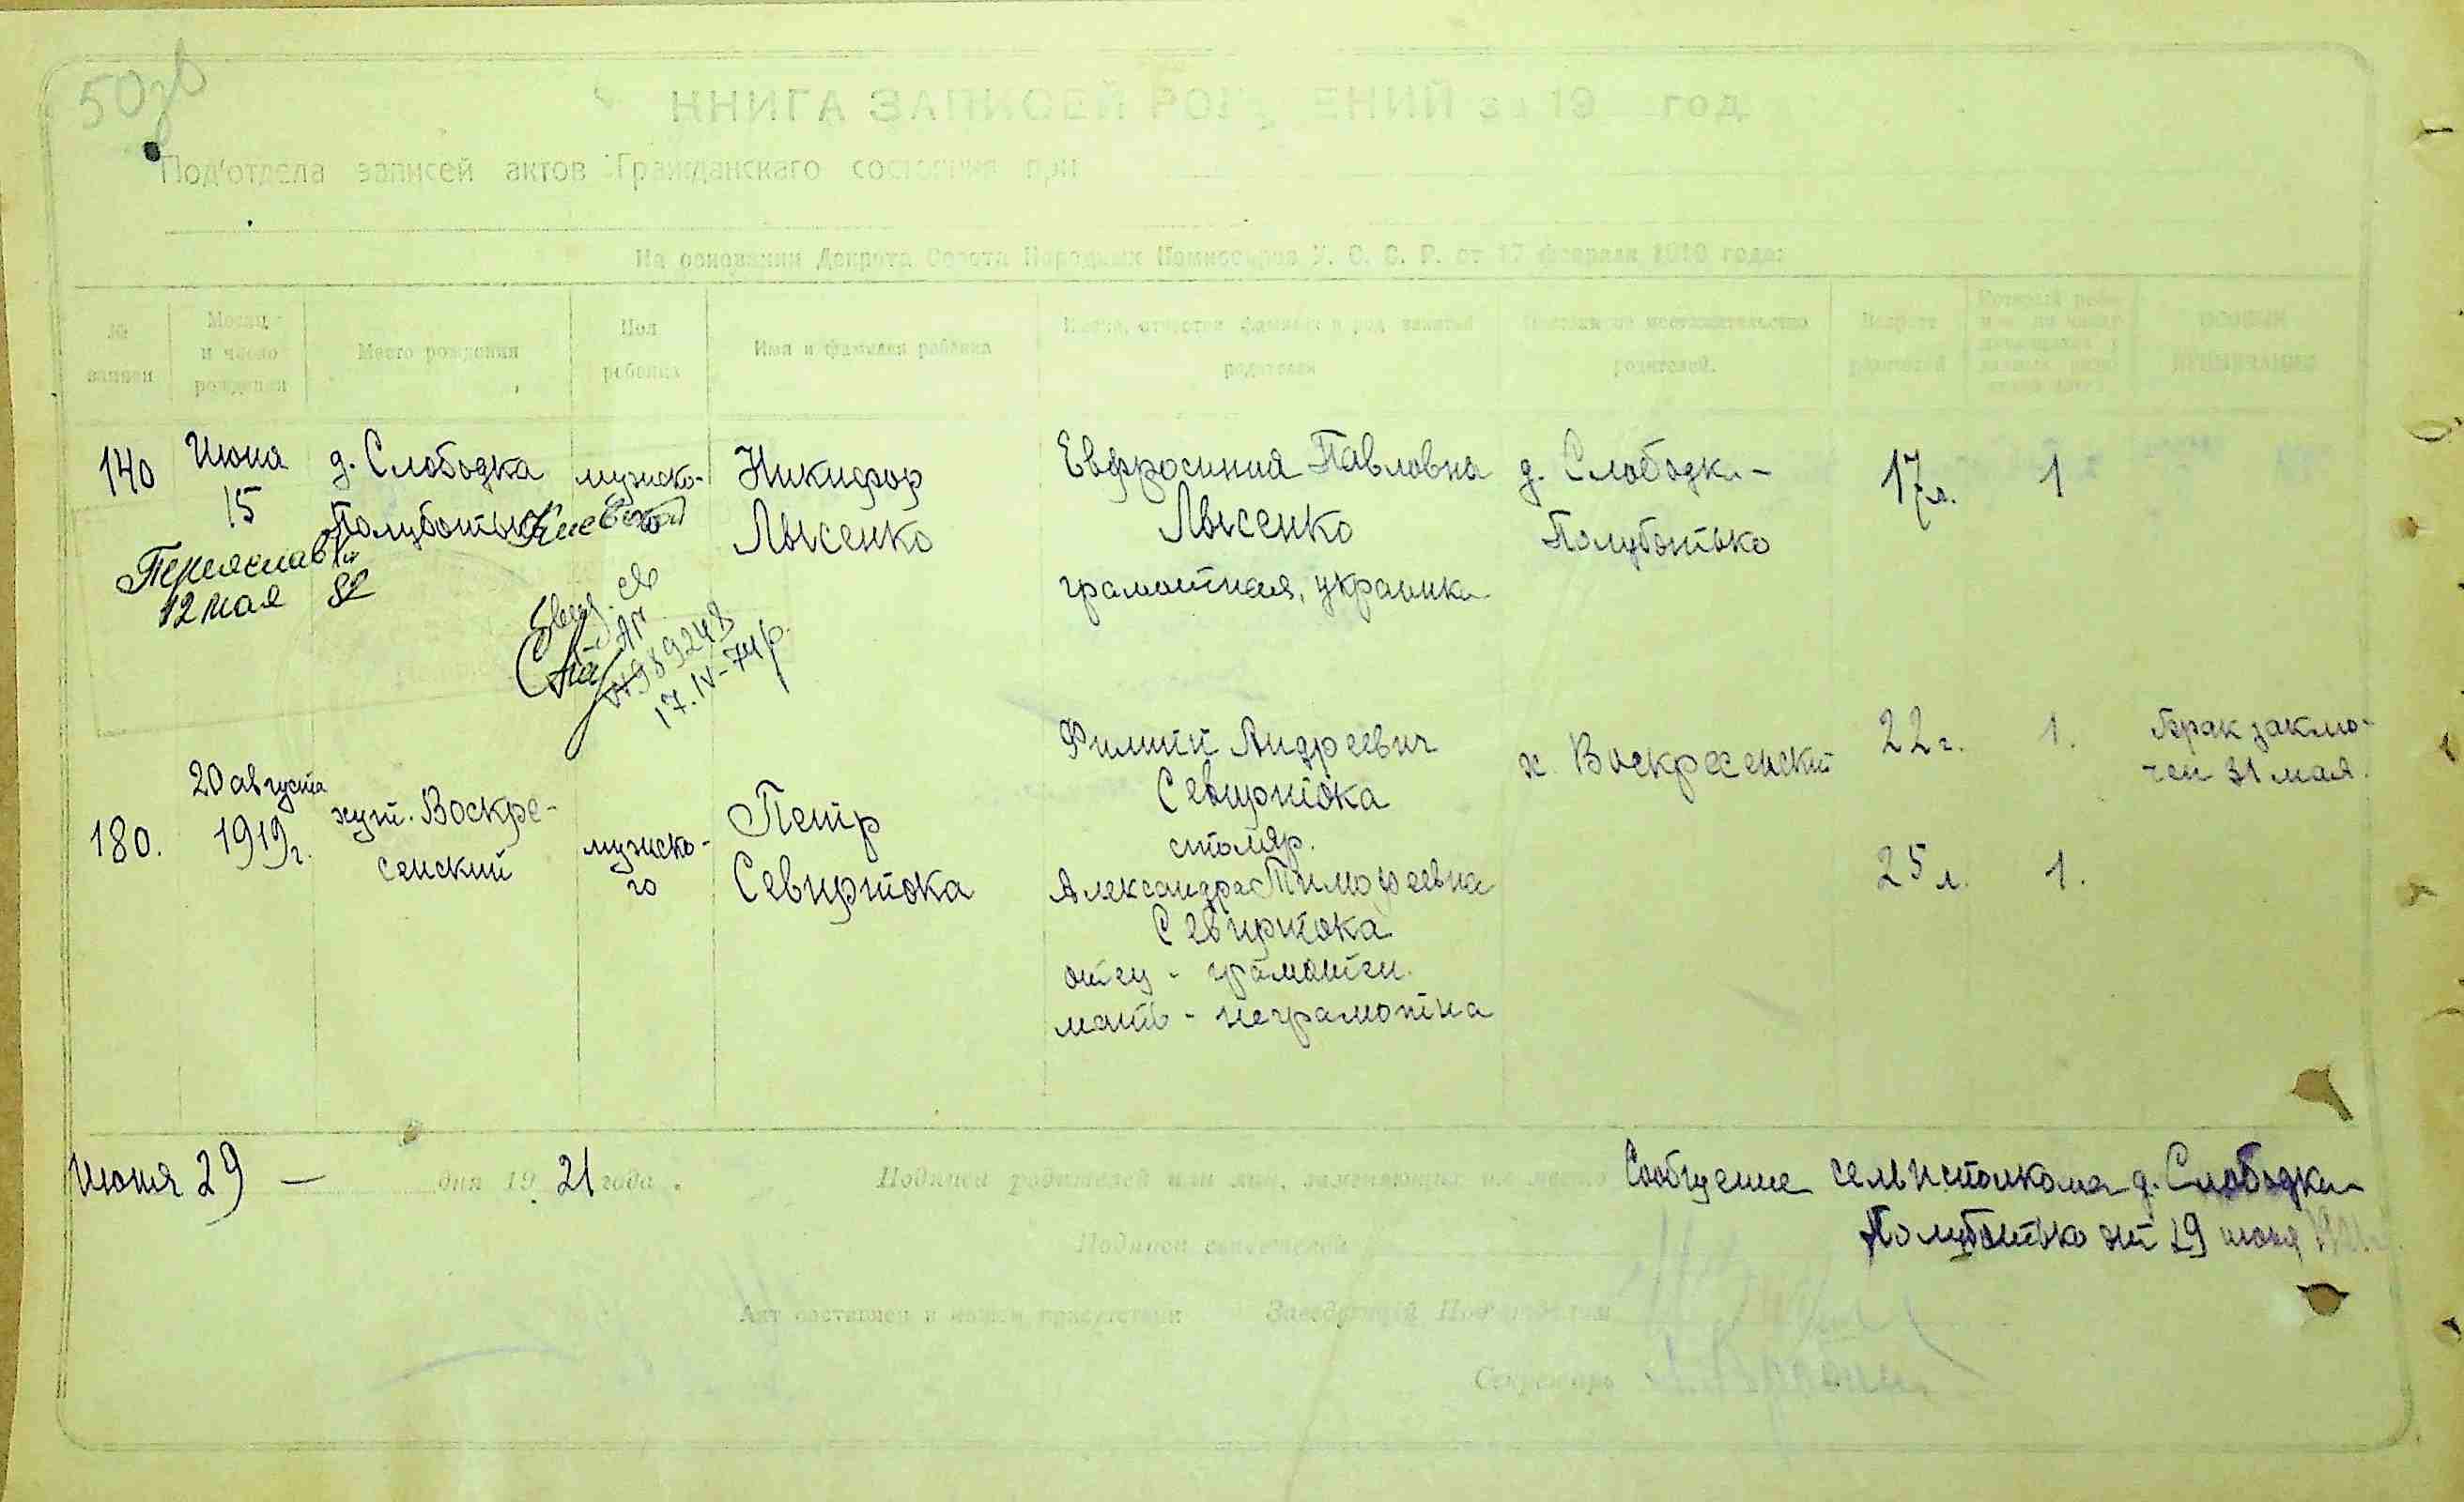 50зв
КНИГА ЗАПИСЕЙ РОЖДЕНИЙ за 19 год
Под'отдела записей актов Гражданскаго состояния при
На основании Декрета Совета Народных Комиссаров У. С. С. Р. от 17 февраля 1919 года:
№ записи
Месяц и число рождения
Место рождения
Пол ребенка
Имя и фамилия ребенка
Имена, отчества фамилия и род занятий родителей
Постоянное местожительство родителей.
Возраст родителей
ОСОБЫЯ ПРИМЕЧАНИЯ
140
Июня
15
д. Слободка
Полуботько
мужско-
го
Никифор
Лысенко
Евфросиния Павловна
Лысенко
грамотная, украинка
д. Слободка-
Полуботько
17 л.
1
Переяслав
Киевской
12 мая 82
989248
17.IV-74р.
180.
20 августа
1919 г.
хут. Воскре-
сенский
мужско-
го
Петр
Севиритока
Филипп Андреевич
Севиритока
столяр.
Александра Тимофеевна
Севиритока
отец - грамотен.
мать - неграмотна
х. Воскресенский
22 г.
1.
Брак заклю-
чен 31 мая.
25 л.
1.
Июня 29 — дня 1921 года.
Подписи родителей или лиц, заменяющих их место
Сообщение сельисполкома д. Слободка-
Полуботько от 29 июня 1921 г.
Подписи свидетелей
Акт составлен в нашем присутствии
Заведующий Под'отделом
Секретарь